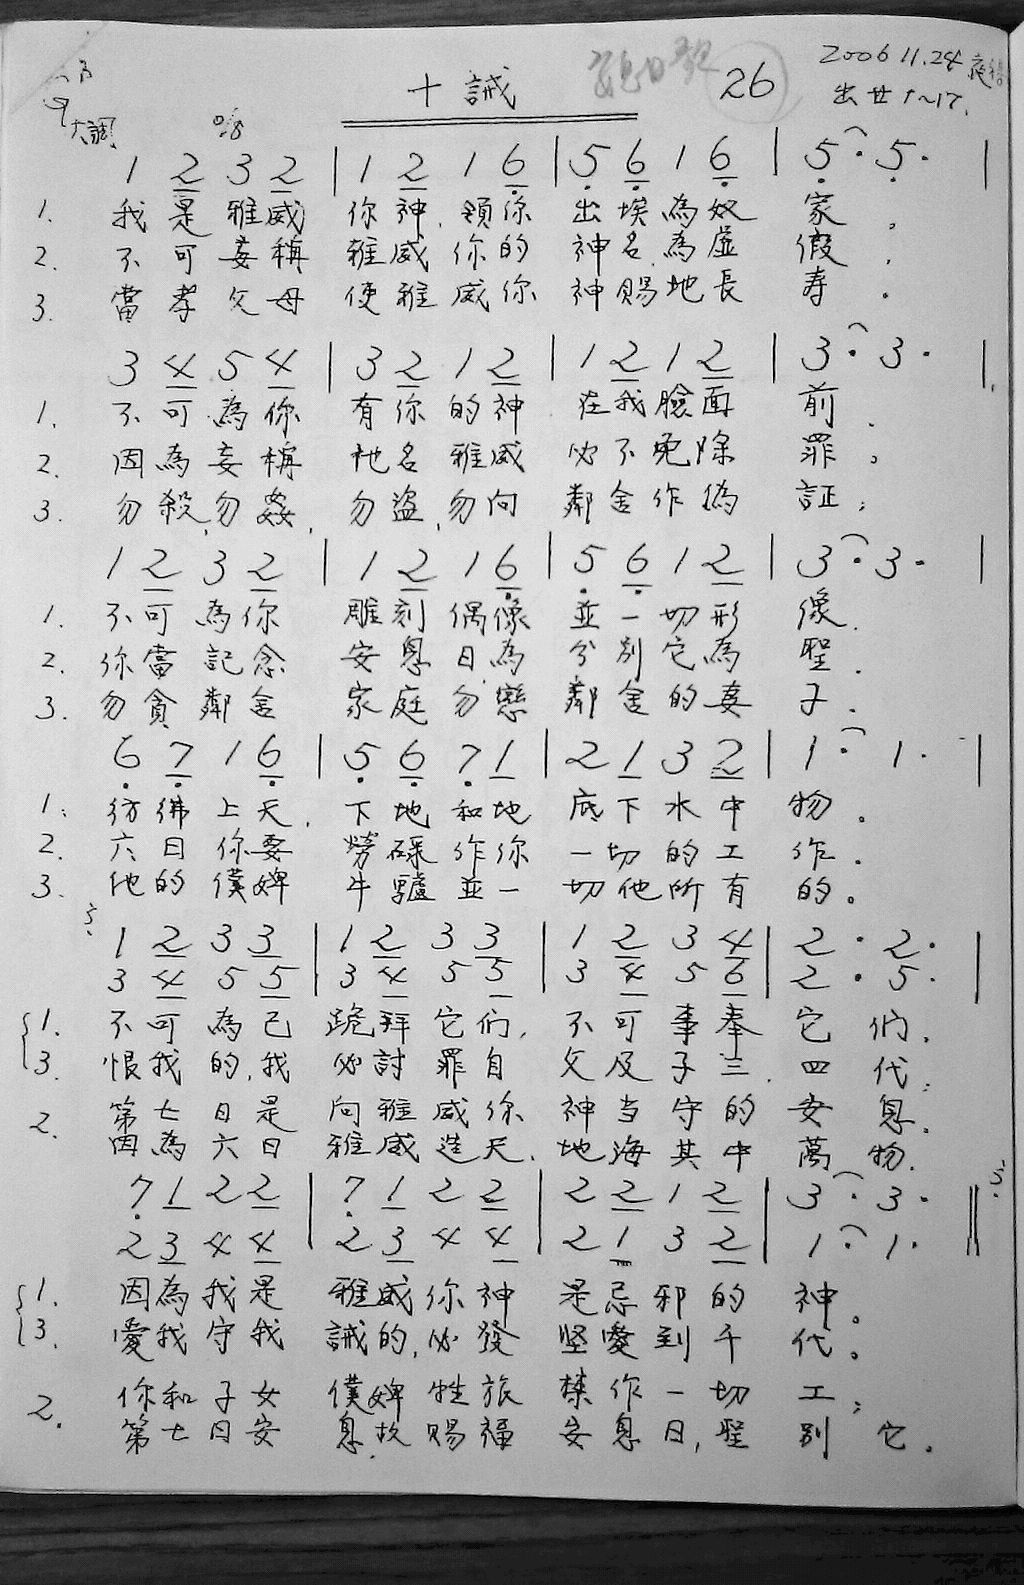 十誡 26 2006 11.24
出廿 1~17.
大調 6/8
1 2 3 2 | 1 2 1 6 | 5 6 1 6 | 5 · 5 · |
1. 我是雅威 你神,領你 出埃為奴 家。
2. 不可妄稱 雅威你的 神名為虛 假。
3. 當孝父母 使雅威你 神賜地長 寿。
3 4 5 4 | 3 2 1 2 | 1 2 1 2 | 3 · 3 · |
1. 不可為你 有你的神 在我臉面 前.
2. 因為妄稱 祂名雅威 必不免除 罪。
3. 勿殺,勿姦, 勿盜,勿向 鄰舍作偽 証;
1 2 3 2 | 1 2 1 6 | 5 6 1 2 | 3 · 3 · |
1. 不可為你 雕刻偶像 並一切形 像.
2. 你當記念 安息日為 分別它為 聖.
3. 勿貪鄰舍 家庭勿戀 鄰舍的妻 子.
6 7 1 6 | 5 6 7 1 | 2 1 3 2 | 1 · 1 · |
1. 彷彿上天, 下地和地 底下水中 物。
2. 六日你要 勞碌作你 一切的工 作.
3. 他的僕婢 牛驢並一 切他所有 的。
1 2 3 3 | 1 2 3 3 | 1 2 3 4 | 2 · 2 · |
3 4 5 5 | 3 4 5 5 | 3 4 5 6 | 2 · 5 · |
1. 不可為己 跪拜它們, 不可事奉 它們.
3. 恨我的,我 必討罪自 父及子三.四代;
2. 第七日是 向雅威你 神当守的 安息.
因為六日 雅威造天. 地海其中 萬物.
7 1 2 2 | 7 1 2 2 | 2 2 1 2 | 3 · 3 · ||
2 3 4 4 | 2 3 4 4 | 2 1 3 2 | 1 · 1 · ||
1. 因為我是 雅威你神 是忌邪的 神。
3. 愛我守我 誡的,必發 坚愛到千 代。
你和子女 僕婢牲旅 禁作一切 工;
2. 第七日安 息,故賜福 安息日,聖 別它.